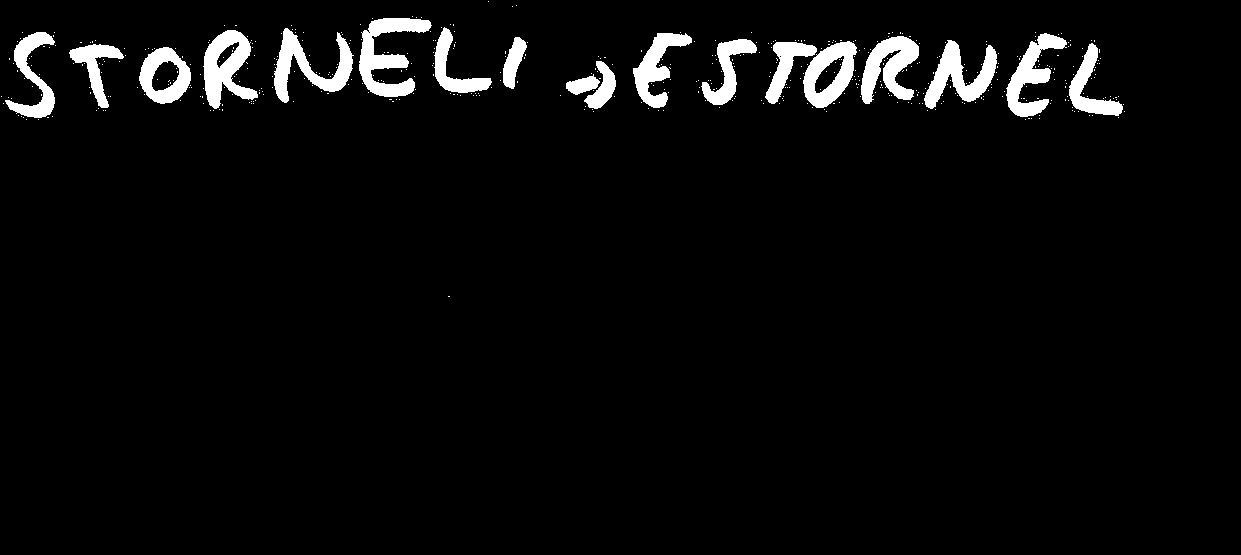 STORNELI → ESTORNEL